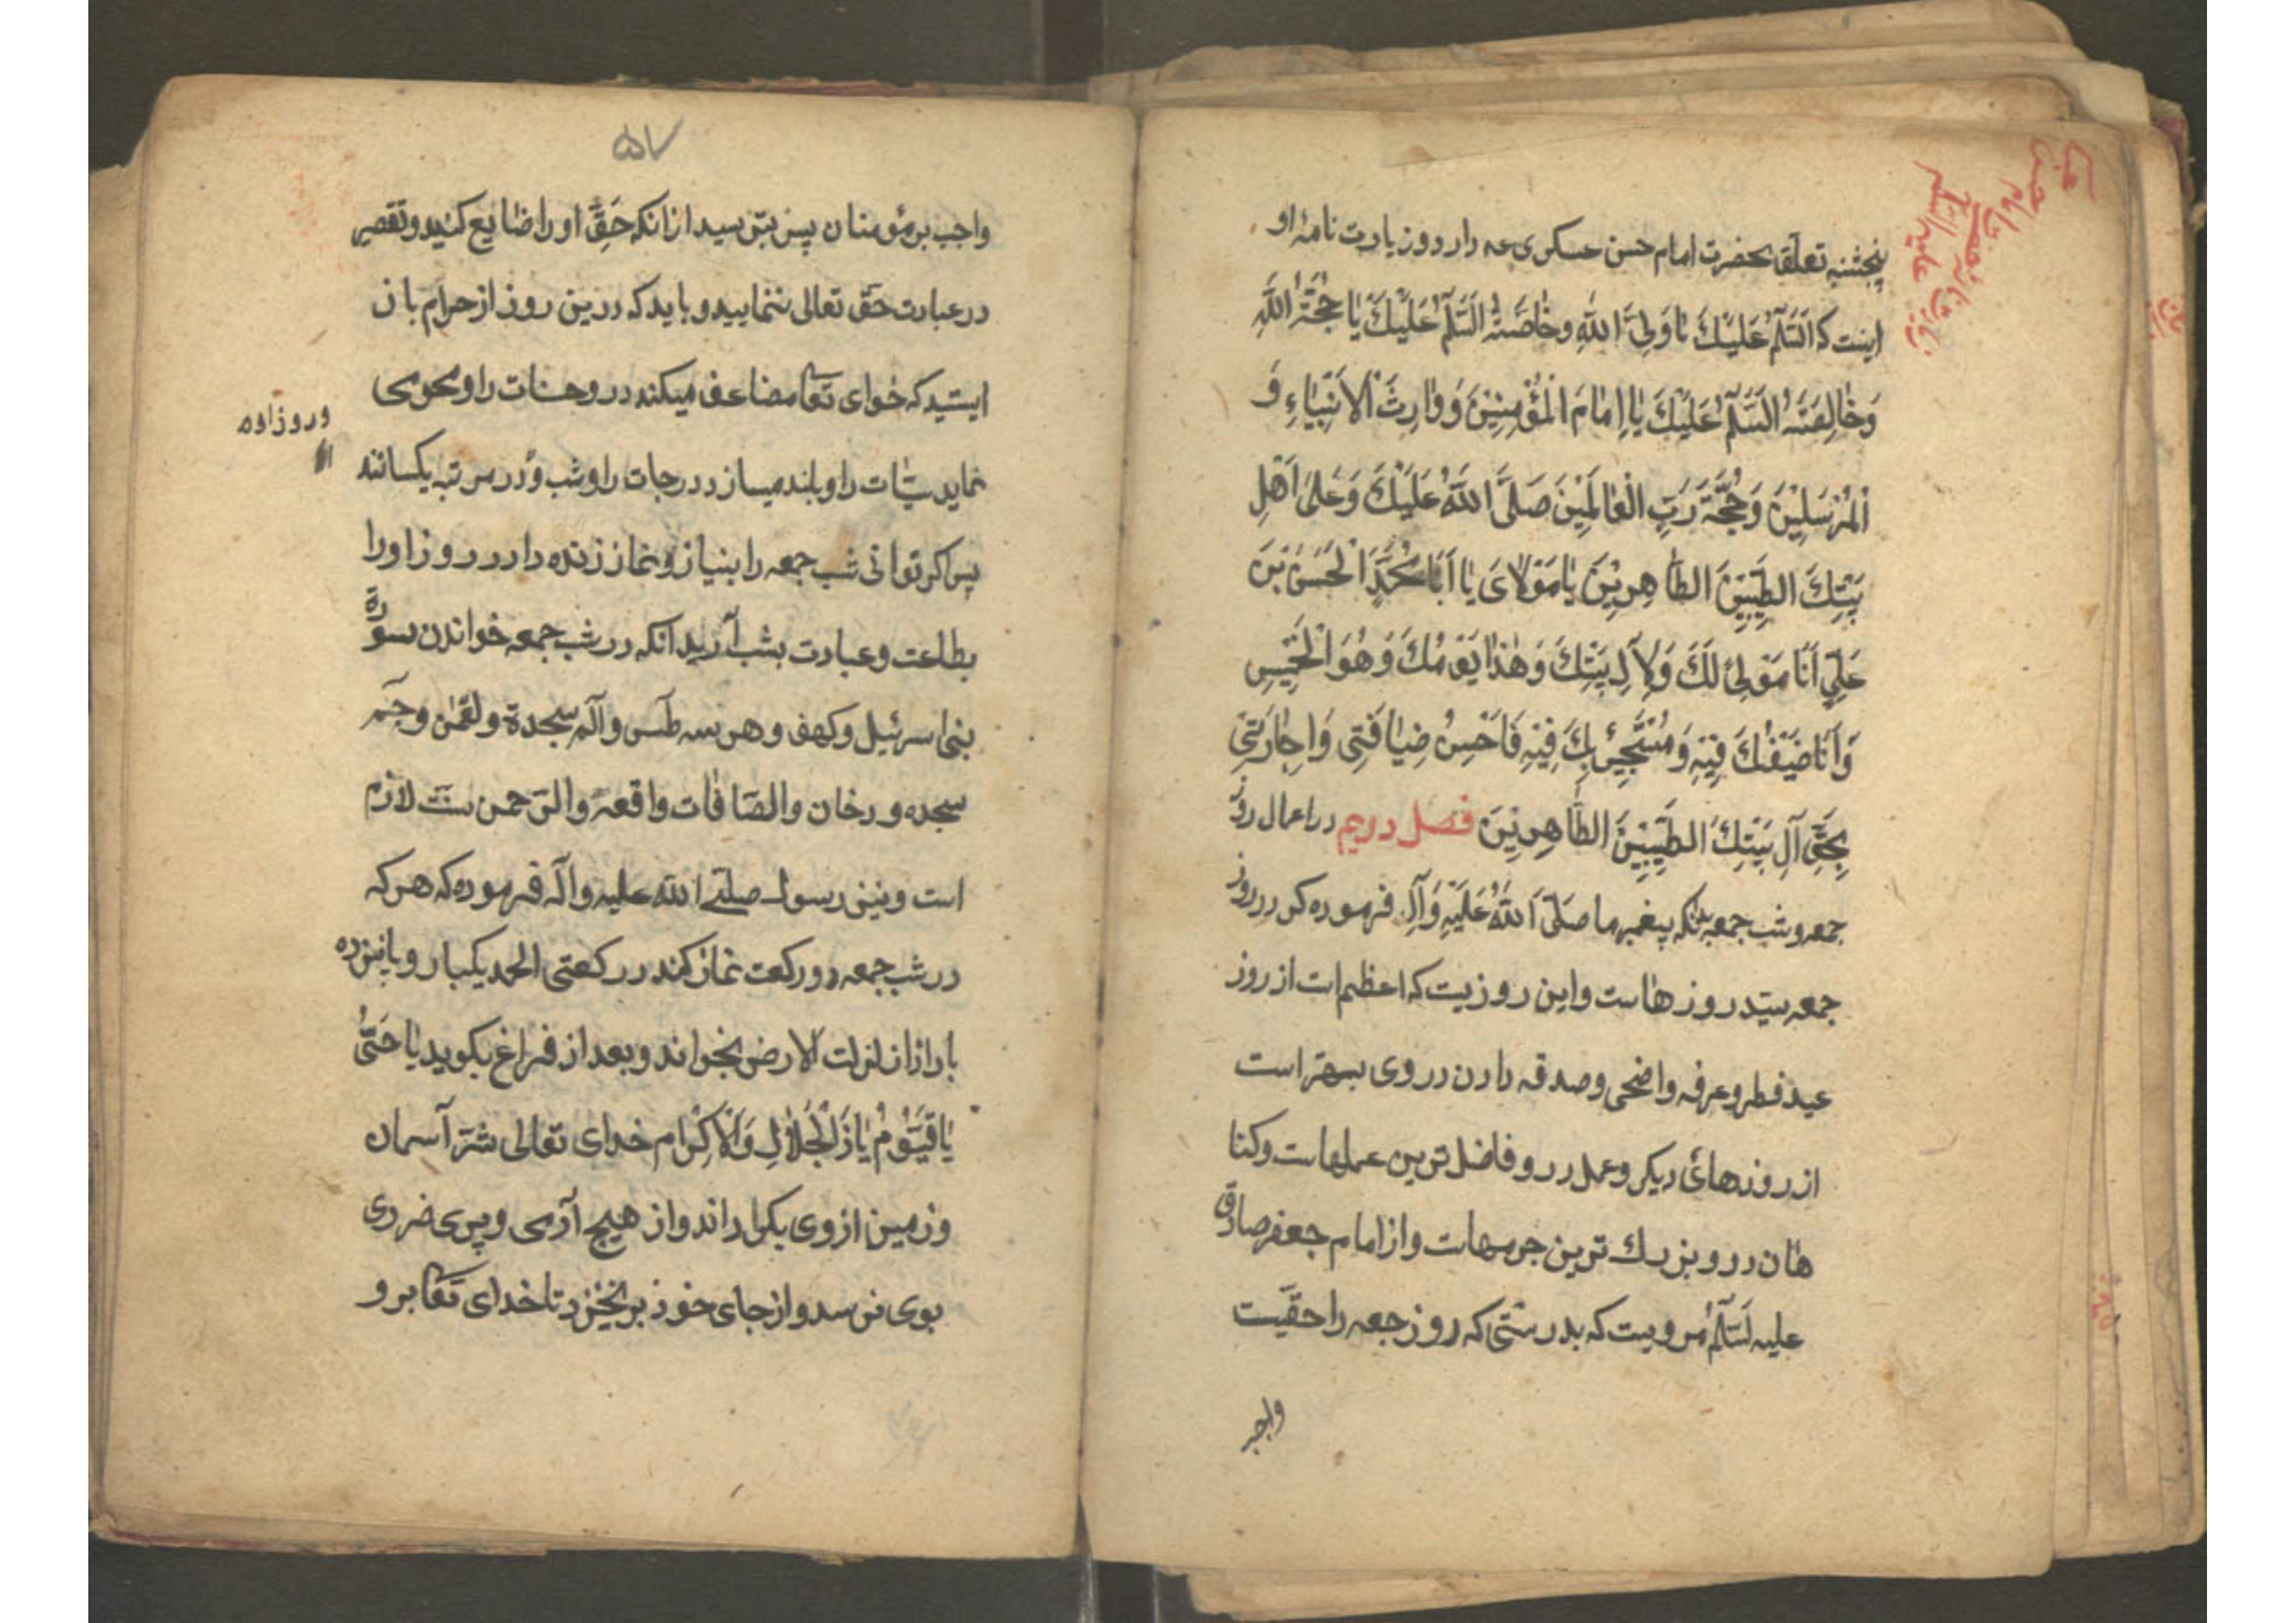 پنجشنبه تعلق بحضرت امام حسن عسکری عه دارد و زیارت نامۀ او
اینست که اَلسَّلٰمُ عَلَیْكَ یٰا وَلِیَّ اللّٰهِ وخٰاصَّتَهُ السَّلٰمُ عَلَیْكَ یٰا حُجَّةَ اللّٰهِ
وَخٰالِصَتَهُ السَّلٰمُ عَلَیْكَ یٰا اِمٰامَ الْمُؤْمِنِیْنَ وَوٰارِثَ الْاَنْبِیٰاءِ وَ
الْمُرْسَلِیْنَ وَحُجَّةَ رَبِّ الْعٰالَمِیْنَ صَلَّی اللّٰهُ عَلَیْكَ وَعَلیٰ اَهْلِ
بَیْتِكَ الطَّیِّبِیْنَ الطّٰاهِرِیْنَ یٰا مَوْلٰایَ یٰا اَبٰا مُحَمَّدٍ الْحَسَنَ بْنَ
عَلِیٍّ اَنَا مَوْلیً لَكَ وَلِآلِ بَیْتِكَ وَهٰذٰا یَوْمُكَ وَهُوَ الْخَمِیْسِ
وَاَنَا ضَیْفُكَ فِیْهِ وَمُسْتَجِیْرٌ بِكَ فِیْهِ فَاَحْسِنْ ضِیٰافَتِی وَاِجٰارَتِیْ
بِحَقِّ آلِ بَیْتِكَ الطَّیِّبِیْنَ الطّٰاهِرِیْنَ فصل دویم در اعمال روز
جمعه و شب جمعه بدانکه پیغمبر ما صَلَّی اللّٰهُ عَلَیْهِ وَآلِهِ فرموده که در روز
جمعه سیّد روزهاست واین روزیست که اعظم است از روز
عید فطر وعرفه واضحی وصدقه دادن در وی بهتر است
از روزهائ دیکر وعمل در و فاضل ترین عملهاست وکنا
هان در و بزرك ترین جرمهاست واز امام جعفر صادق
علیه لسّلٰمُ مرویست که بدرستی که روز جعه را حقیّست
واجب
۵۷
واجب بر مؤمنان پس بترسید از انکه حَقِّ او را ضٰایع کنید و تقصیر
در عبادت حَقّ تعالی ننمایید و باید که درین روز از حرام باز
ایستید که خدای تعا مضاعف میکند در و حسنات را ومحومی
نماید سیّئات را و بلند میسازد درجات را و شب و در مرتبه یکسانند
و روز او ه
پس اکر توانی شب جمعه را بنیاز و نماز زنده دار در روز او را
بطاعت و عبادت بشب آرید انکه در شب جمعه خواندن سورۀ
بنی اسرئیل و کهف و هر سه طٓس و الٓم سجدة و لقمٰن و حٓم
سجده و دخان والصّافٰات واقعۀ والرّحمن سنّت لازم
است و نیز رسول صلّی اللّٰه علیه وآله فرموده که هر که
در شب جمعه دو رکعت نماز کند در رکعتی الحمد یکبار و پانزده
بار اذا زلزلت الارض بخواند و بعد از فراغ بکوید یٰا حَیُّ
یٰا قَیُّوْمُ یٰا ذَ الْجَلٰالِ وَالْاِکْرٰام خدای تعالی شرّ آسمان
و زمین از وی بکرداند و از هیچ آدمی و پری ضرری
بوی نرسد و از جای خود برنخیزد تا خدای تعا بر و